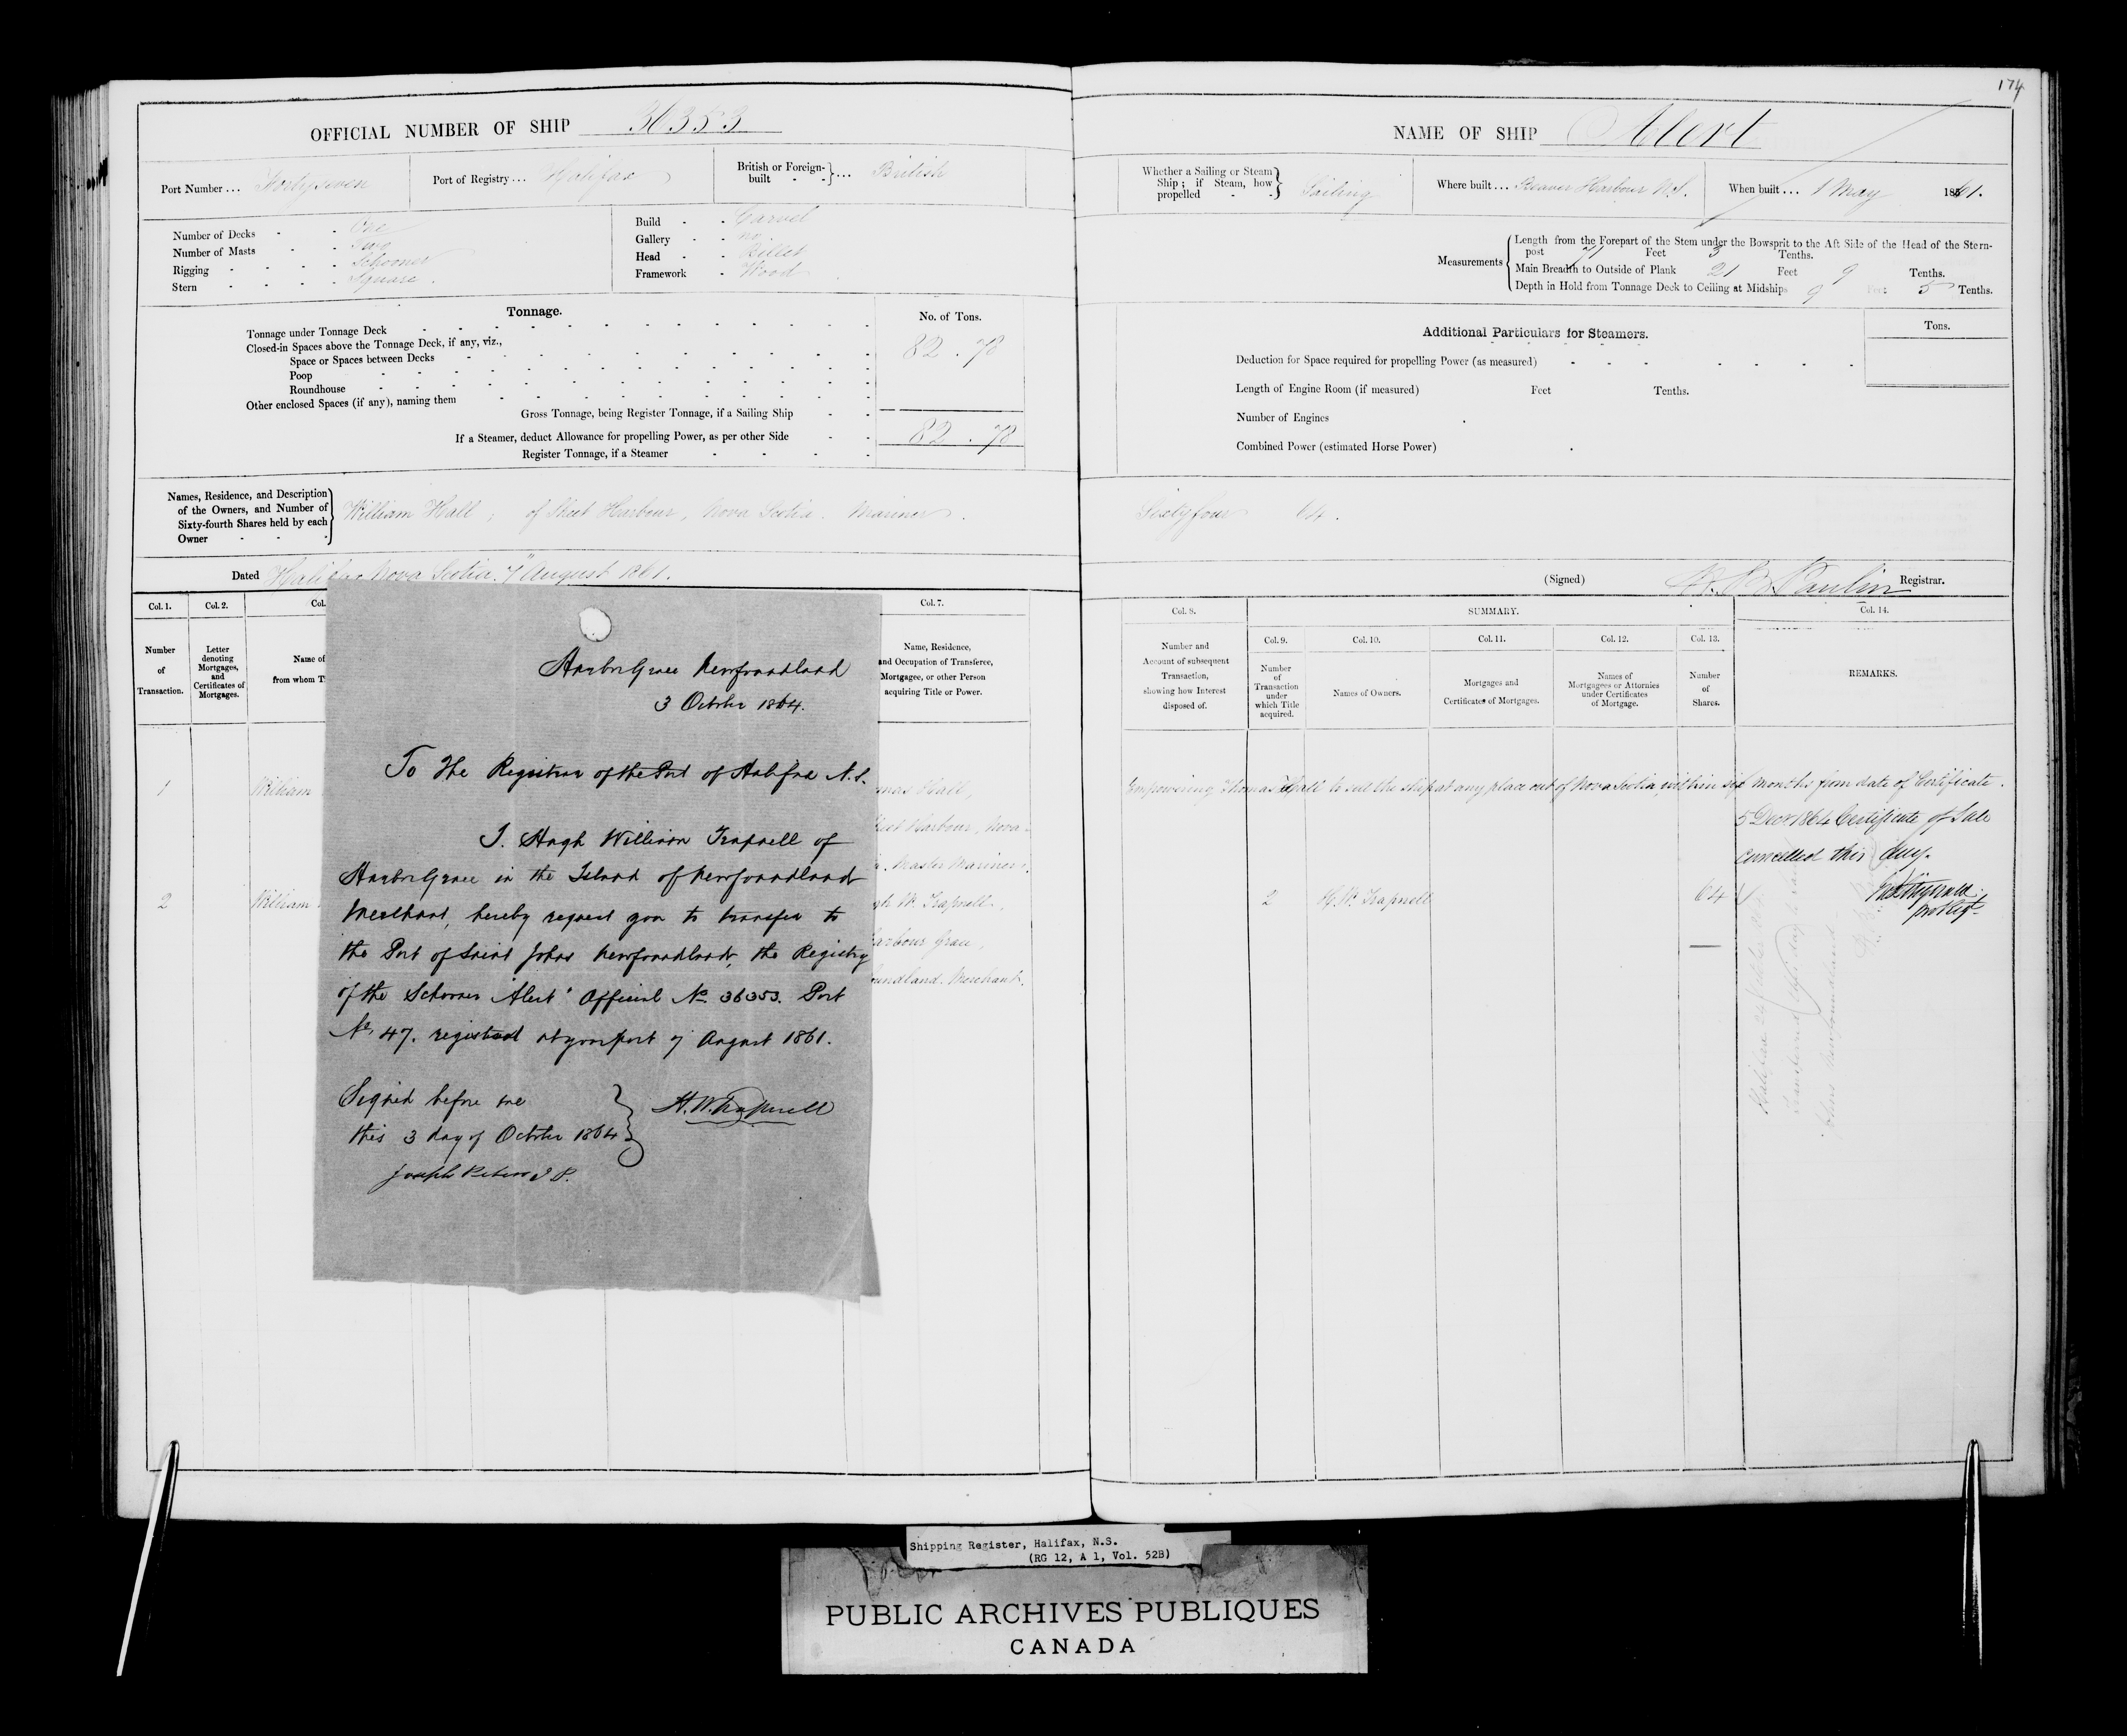 174
OFFICIAL NUMBER OF SHIP 36353
Port Number... Fortyseven
Port of Registry... Halifax
British or Foreign-built - - } ... British
Number of Decks - - One
Number of Masts - - Two
Rigging - - - - Schooner
Stern - - - - Square.
Build - - Carvel
Gallery - - no
Head - - Billet
Framework - Wood
Tonnage.
No. of Tons.
Tonnage under Tonnage Deck
Closed-in Spaces above the Tonnage Deck, if any, viz.,
82.78
Space or Spaces between Decks
Poop
Roundhouse
Other enclosed Spaces (if any), naming them
Gross Tonnage, being Register Tonnage, if a Sailing Ship
If a Steamer, deduct Allowance for propelling Power, as per other Side
82.78
Register Tonnage, if a Steamer
Names, Residence, and Description
of the Owners, and Number of
Sixty-fourth Shares held by each
Owner
William Hall; of Sheet Harbour, Nova Scotia. Mariner.
Dated Halifax Nova Scotia. 7" August 1861.
Col. 1.
Col. 2.
Col.
Col. 7.
Number
of
Transaction.
Letter
denoting
Mortgages,
and
Certificates of
Mortgages.
Name of
from whom T
Name, Residence,
and Occupation of Transferee,
Mortgagee, or other Person
acquiring Title or Power.
1 William
mas Hall,
eet Harbour, Nova
. Master Mariner.
2 William
gh W. Trapnell,
arbour Grace,
undland. Merchant.
Harbor Grace Newfoundland
3 October 1864.
To The Registrar of the Port of Halifax N.S.
I. Hugh William Trapnell of
Harbor Grace in the Island of Newfoundland
Merchant, hereby request you to transfer to
the Port of Saint Johns Newfoundland, the Registry
of the Schooner "Alert" Official No. 36353. Port
No. 47. registered at your port 7 August 1861.
Signed before me
this 3 day of October 1864
H. W. Trapnell
Joseph Peters J.P.
NAME OF SHIP Alert
Whether a Sailing or Steam
Ship; if Steam, how
propelled - -
Sailing
Where built... Beaver Harbour N.S.
When built... 1 May 1861.
Measurements
Length from the Forepart of the Stem under the Bowsprit to the Aft Side of the Head of the Stern-
post 71 Feet 3 Tenths.
Main Breadth to Outside of Plank 21 Feet 9 Tenths.
Depth in Hold from Tonnage Deck to Ceiling at Midships 9 Feet 5 Tenths.
Additional Particulars for Steamers.
Tons.
Deduction for Space required for propelling Power (as measured)
Length of Engine Room (if measured) Feet Tenths.
Number of Engines
Combined Power (estimated Horse Power)
Sixtyfour 64.
(Signed) Paulin Registrar.
Col. 8.
SUMMARY.
Col. 14.
Col. 9.
Col. 10.
Col. 11.
Col. 12.
Col. 13.
Number and
Account of subsequent
Transaction,
showing how Interest
disposed of.
Number
of
Transaction
under
which Title
acquired.
Names of Owners.
Mortgages and
Certificates of Mortgages.
Names of
Mortgagees or Attornies
under Certificates
of Mortgage.
Number
of
Shares.
REMARKS.
Empowering Thomas Hall to sell the ship at any place out of Nova Scotia, within six months from date of Certificate.
5 Decr 1864 Certificate of Sale
cancelled this day.
2 H. W. Trapnell 64
Shipping Register, Halifax, N.S.
(RG 12, A 1, Vol. 52B)
PUBLIC ARCHIVES PUBLIQUES
CANADA